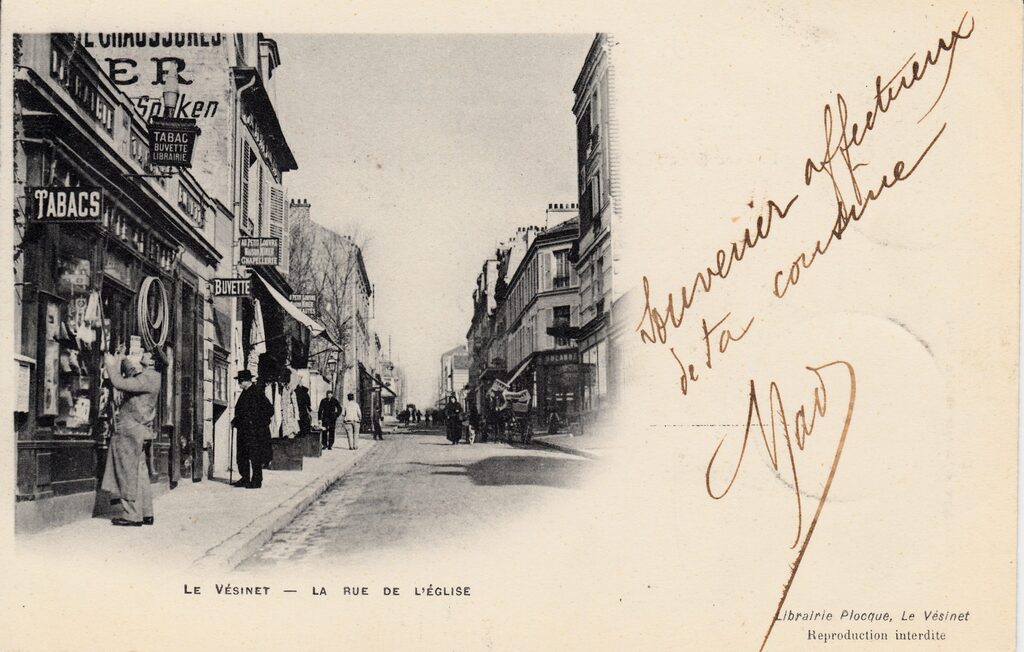 E CHAUSSURES
ER
TABAC
BUVETTE
LIBRAIRIE
TABACS
AU PETIT LOUVRE
CHAPELLERIE
BUVETTE
Souvenir affectueux
de ta cousine
LE VÉSINET — LA RUE DE L'ÉGLISE
Librairie Plocque, Le Vésinet
Reproduction interdite